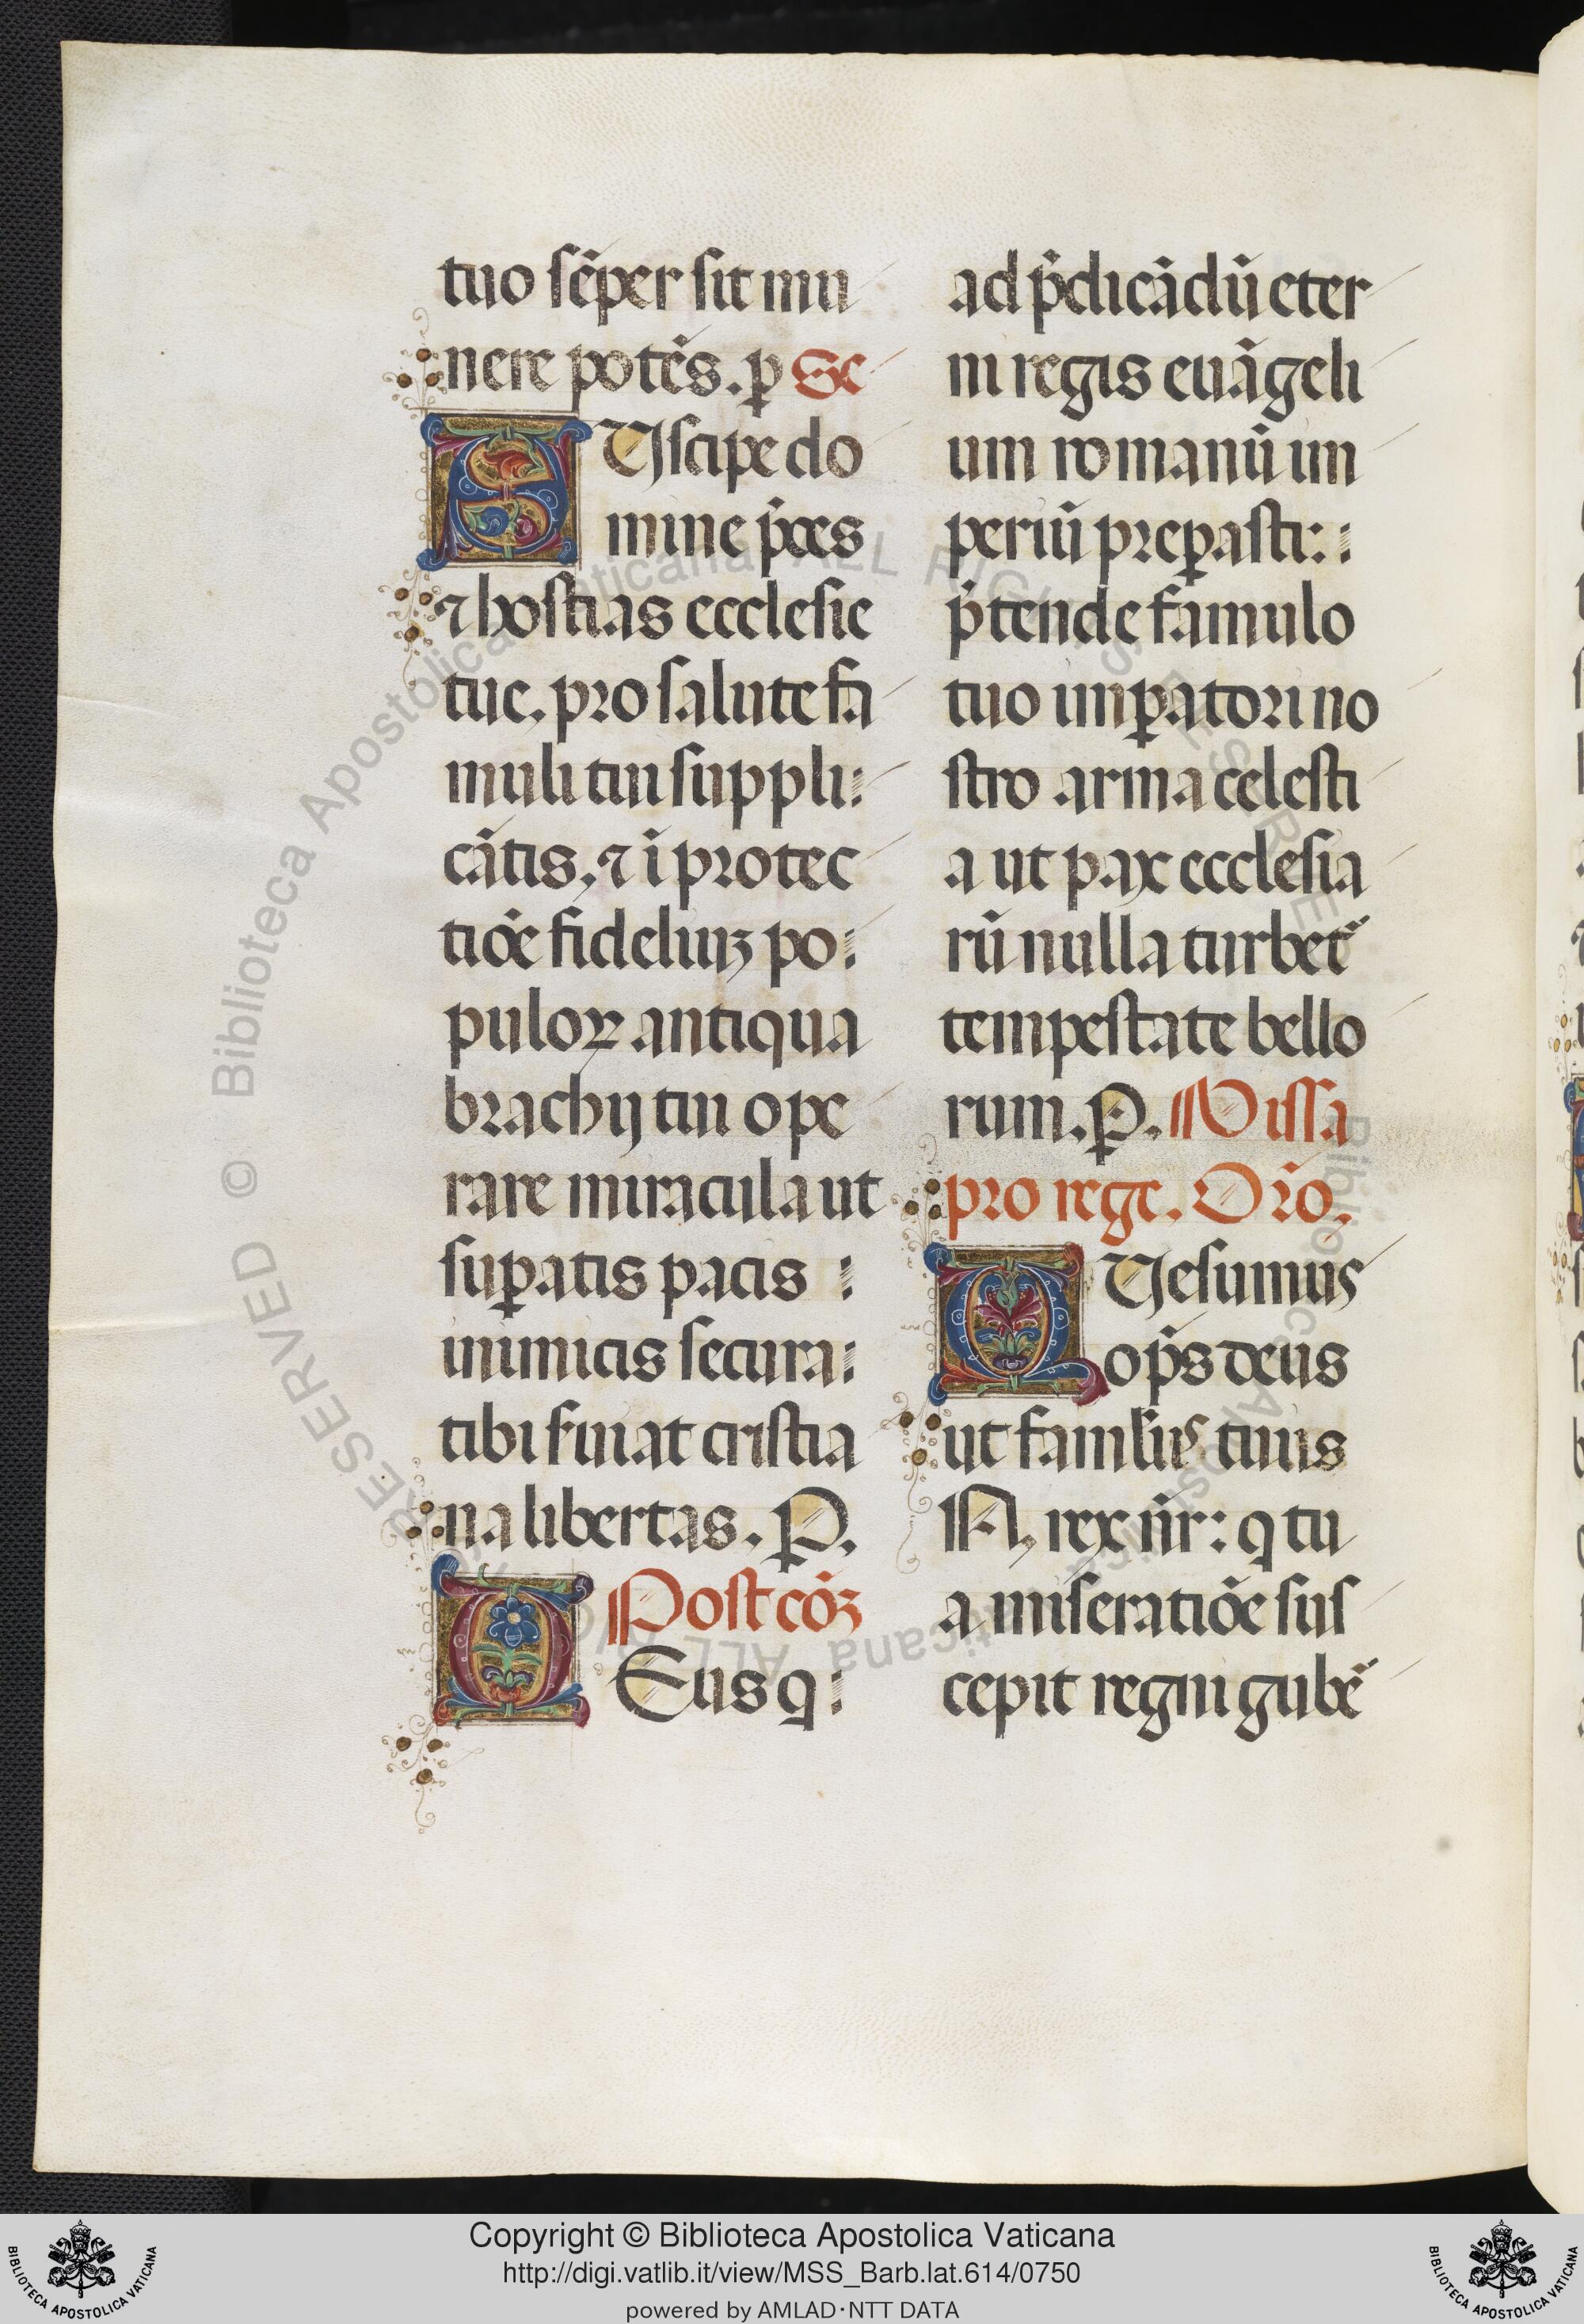 tuo sēper sit mu
nere potēs. ꝑ Se
SUscipe do
mine p̄ces
⁊ hostias ecclesie
tue, pro salute fa
muli tui suppli:
cātis, ⁊ ī protec
tiōe fideliuꝫ po:
puloꝝ antiqua
brachij tui ope
rare miracula ut
suꝑatis pacis :
inimicis secura:
tibi ẜuiat cristia
na libertas. P.
Post cōꝫ
DEus q :
ad p̄dicādū eter
ni regis euāgeli
um romanū im
periū preꝑasti: :
p̄tende famulo
tuo imꝑatori no
stro arma celesti
a ut pax ecclesia
rū nulla turbet᷑
tempestate bello
rum. P. Missa
pro rege. Or̄o.
QUesumus
op̄s deus
ut famulꝰ tuus
N, rex nr̄: q tu
a miseratiōe sus
cepit regni gub̄e
© Biblioteca Apostolica Vaticana ALL RIGHTS RESERVED
Copyright © Biblioteca Apostolica Vaticana
http://digi.vatlib.it/view/MSS_Barb.lat.614/0750
powered by AMLAD·NTT DATA
BIBLIOTECA APOSTOLICA VATICANA
BIBLIOTECA APOSTOLICA VATICANA